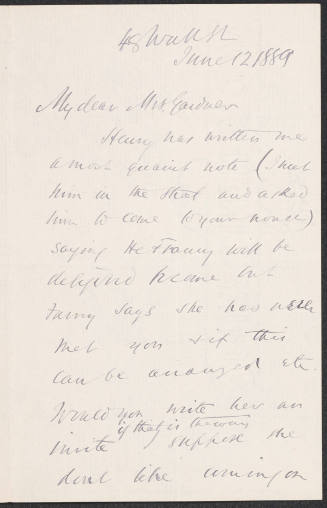 48 Wall St
June 12 1889
My dear Mrs. Gardner
Henry has written me
a most quaint note (I met
him in the street and asked
him to come to your house)
saying He & Fanny will be
delighted to come but
Fanny says she has never
met you & if this
can be arranged etc.
Would you write her an
if that is the way
invite I suppose she
dont like coming on